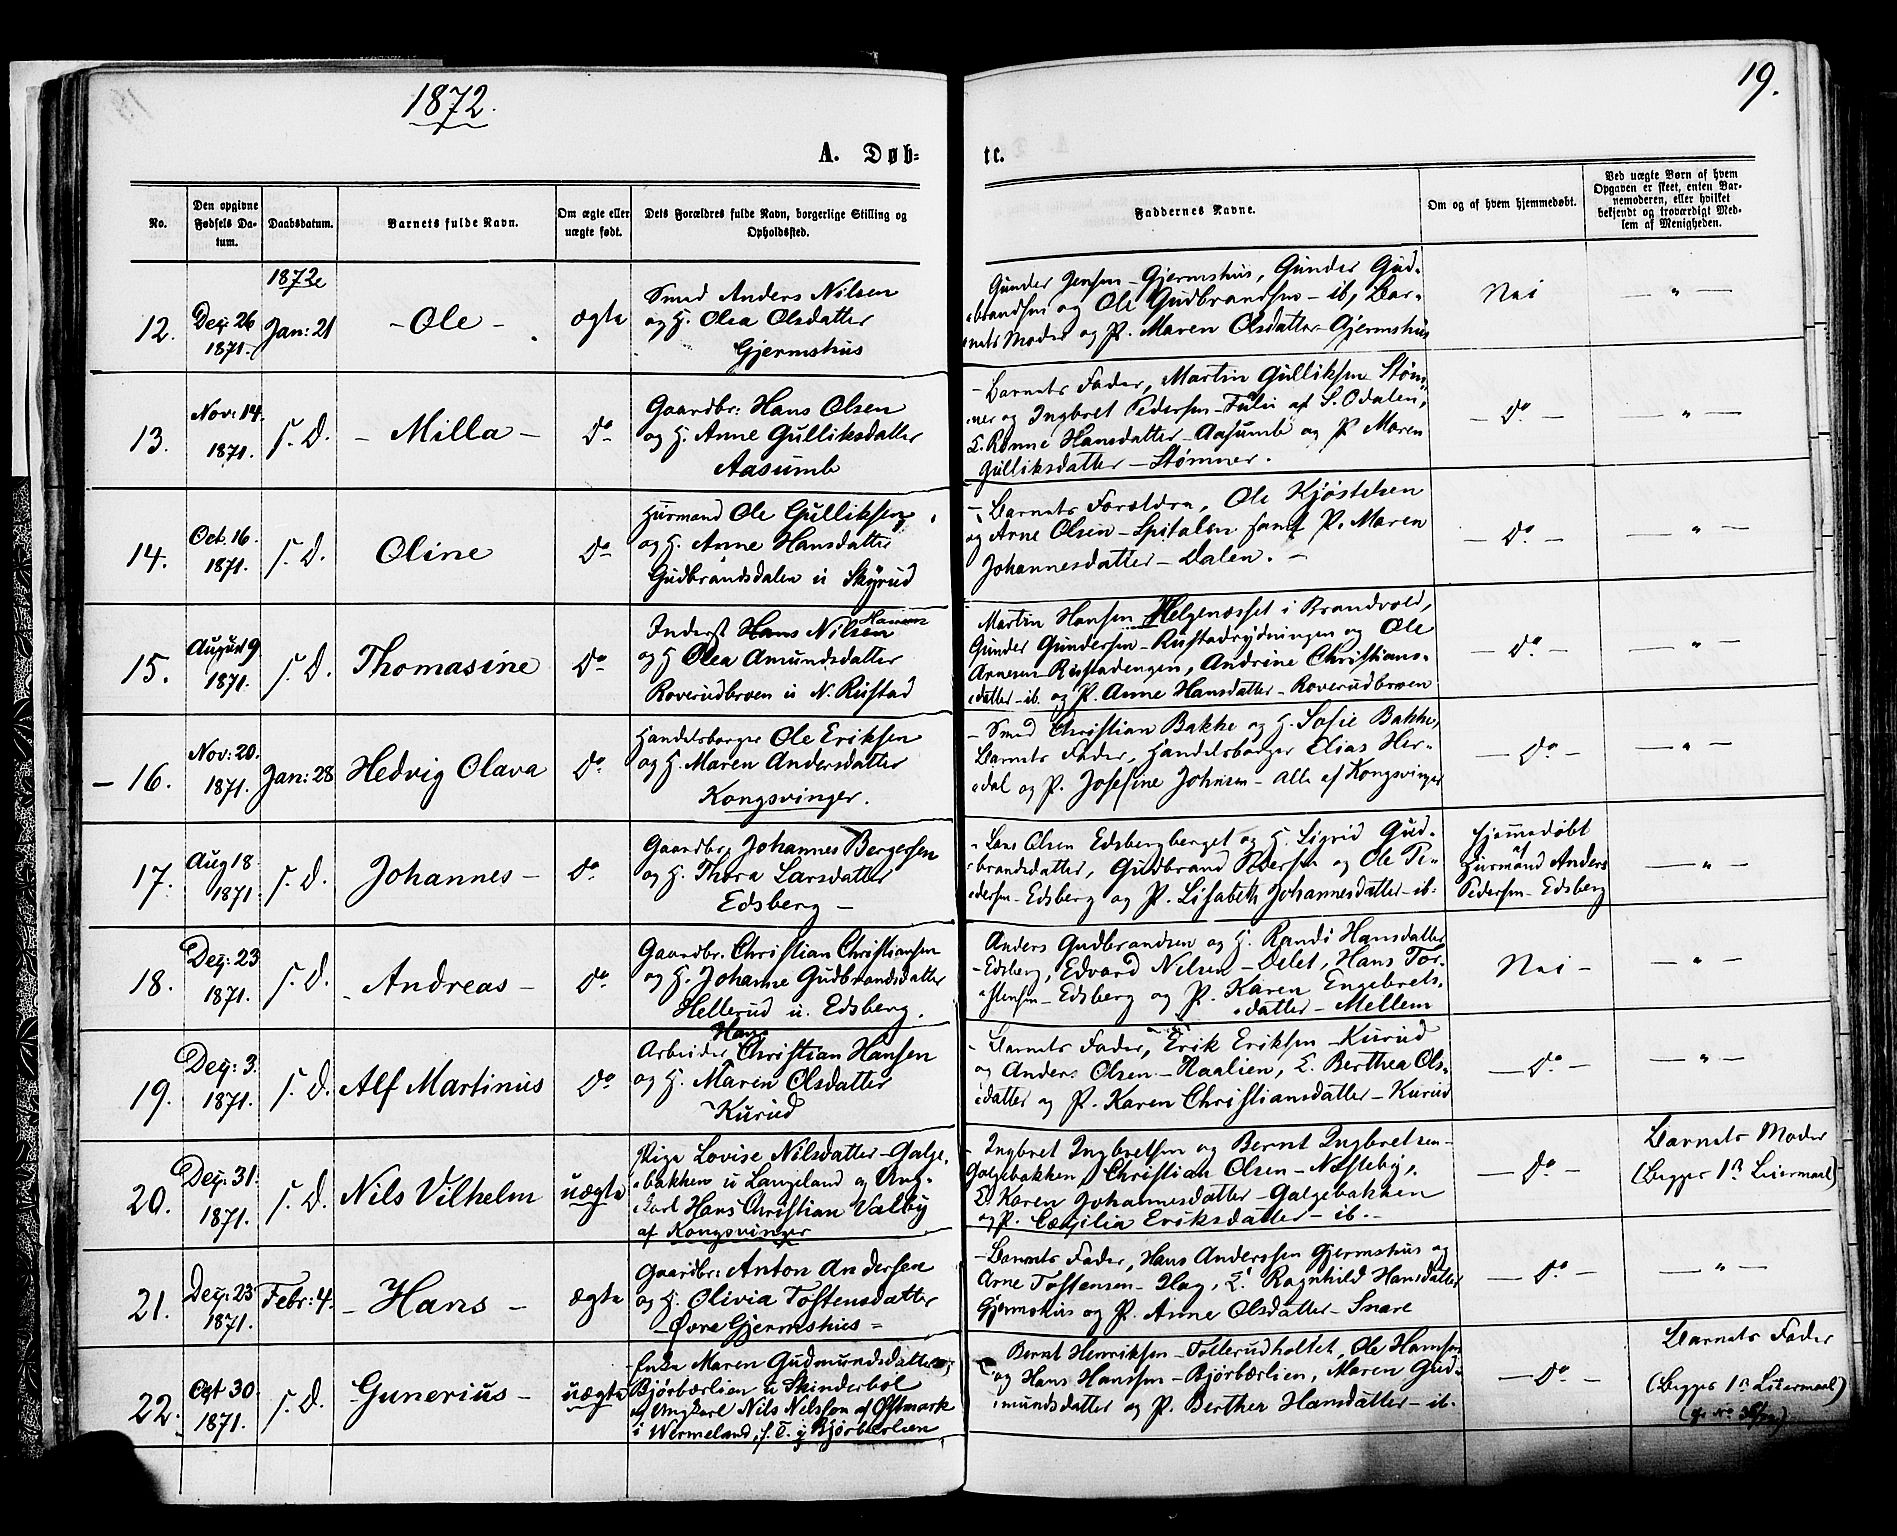 1872.
19.
A. Døb-
te.
No.
Den opgivne Fødsels Datum.
Daabsdatum.
Barnets fulde Navn.
Om ægte eller uægte født.
Dets Forældres fulde Navn, borgerlige Stilling og Opholdssted.
Faddernes Navne.
Om og af hvem hjemmedøbt.
Ved uægte Børn af hvem Opgaven er skeet, enten Barnemoderen, eller hvilket bekjendt og troværdigt Medlem af Menigheden.
12.
Dec: 26
1871.
1872
Jan: 21
- Ole -
ægte
Smed Anders Nilsen
og H. Olea Olsdatter
Gjermshus
Gunder Jensen - Gjermshus, Gunder Gud-
brandsen og Ole Gudbrandsen - ib, Bar-
nets Moder og P. Maren Olsdatter - Gjermshus
Nei
— " —
13.
Nov: 14.
1871.
s. D.
- Milla -
Do
Gaardbr: Hans Olsen
og H. Anne Gulliksdatter
Aasumb
- Barnets Fader, Martin Gulliksen Støm-
ner og Ingbret Pedersen - Fuli af S. Odalen,
E. Ronne Hansdatter - Aasumb og P. Maren
Gulliksdatter - Stømner.
- Do -
— " —
14.
Oct. 16.
1871.
s. D.
Oline
Do
Husmand Ole Gulliksen
og H. Anne Hansdatter
Gudbrandsdalen u Skyrud
- Barnets Forældre, Ole Kjøstelsen
og Arne Olsen - Spitalen samt P. Maren
Johannesdatter - Dalen. -
- Do -
— " —
15.
August 9
1871.
s. D.
Thomasine
Do
Hansen
Inderst Hans Nilsen
og H Olea Amundsdatter
Roverudbroen u N. Rustad
Martin Hansen Helgenæsset i Brandvold,
Gunder Gundersen - Rustadrydningen og Ole
Arnesen Rustadengen, Andrine Christians-
datter - ib. og P. Anne Hansdatter - Roverudbroen
- Do -
— " —
- 16.
Nov: 20.
1871.
Jan: 28
Hedvig Olava
Do
Handelsborger Ole Eriksen
og H. Maren Andersdatter
Kongsvinger.
- Smed Christian Bakke og H. Sofie Bakke,
Barnets Fader, Handelsborger Elias Her-
dal og P. Josefine Johnsen - alle af Kongsvinger
- Do -
— " —
17.
Aug 18
1871.
s. D.
Johannes -
Do
Gaardbr. Johannes Bergersen
og H. Thora Larsdatter
Edsberg -
- Lars Olsen Edsbergberget og H. Sigrid Gud-
brandsdatter, Gudbrand Pedersen og Ole Pe-
dersen - Edsberg og P. Lisabeth Johannesdatter - ib.
Hjemmedøbt
af
Husmand Anders
Pedersen - Edsberg
— " —
18.
Dec: 23
1871.
s. D.
- Andreas -
Do
Gaardbr. Christian Christiansen
og H. Johanne Gudbrandsdatter
Hellerud u. Edsberg.
Anders Gudbrandsen og H. Randi Hansdatter
- Edsberg, Edvard Nilsen - Delet, Hans Tor-
stensen - Edsberg og P. Karen Engebrets-
datter - Mellem
Nei -
— " —
19.
Dec: 3.
1871.
s. D.
Alf Martinus
Do
Hans
Arbeider Christian Hansen
og H. Maren Olsdatter
Kurud
- Barnets Fader, Erik Eriksen - Kurud
og Anders Olsen - Naalien, E. Berthea Ols-
datter og P. Karen Christiansdatter - Kurud
- Do -
— " —
20.
Dec: 31.
1871.
s. D.
Nils Vilhelm
uægte
Pige Lovise Nilsdatter - Galge-
bakken u Langeland og Ung-
karl Hans Christian Valby
af Kongsvinger
- Ingbret Ingbretsen og Bernt Ingbretsen -
Galgebakken, Christian Olsen - Næsteby,
E. Karen Johannesdatter - Galgebakken
og P. Cæcilia Eriksdatter - ib. -
- Do -
Barnets Moder
(Begges 1ste Leiermaal)
21.
Dec: 23
1871.
Febr: 4.
- Hans -
ægte
Gaardbr: Anton Andersen
og H. Olivia Tostensdatter
Øvre Gjermshus -
- Barnets Fader, Hans Anderssen Gjermshus og
Arne Tostensen - Hag, E. Ragnhild Hansdatter
Gjermshus og P. Anne Olsdatter - Snare
- Do -
— " —
22.
Oct 30
1871.
s. D.
Gunerius -
uægte
Enke Maren Gudmundsdatter,
Bjørbærlien u Skinderbøl
og Ungkarl Nils Nilsson af Østmark
i Wermeland, s. T. i Bjørbærlien
Bernt Henriksen - Tollerudholtet, Ole Hansen
og Hans Hanssen - Bjørbærlien, Maren Gud-
mundsdatter og P. Berthea Hansdatter - ib.
- Do -
Barnets Fader
(Begges 1ste Leiermaal)